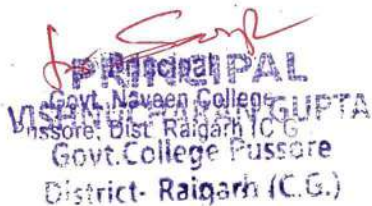 Principal PRINCIPAL
Govt. Naveen College
VISHNUCHARAN GUPTA
Pussore. Dist. Raigarh (C.G
Govt.College Pussore
District- Raigarh (C.G.)